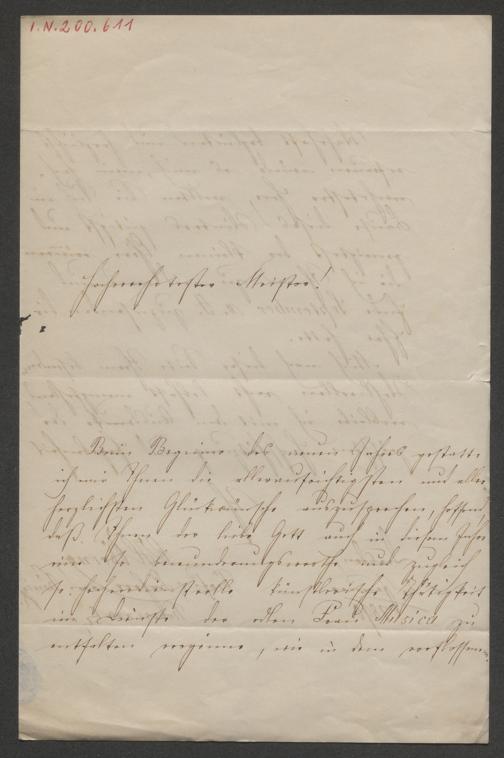 I.N.200.611
Hochverehrtester Meister!
Beim Beginne des neuen Jahres gestatte
ich mir Ihnen die alleraufrichtigsten und aller
herzlichsten Glückwünsche auszusprechen, hoffend
daß Ihnen der liebe Gott auch in diesem Jahre
eine so bewunderungswerthe und zugleich
so künstlerische Thätigkeit
im Dienste der edlen Frau Musica zu
entfalten vergönne, wie in dem verflossenen